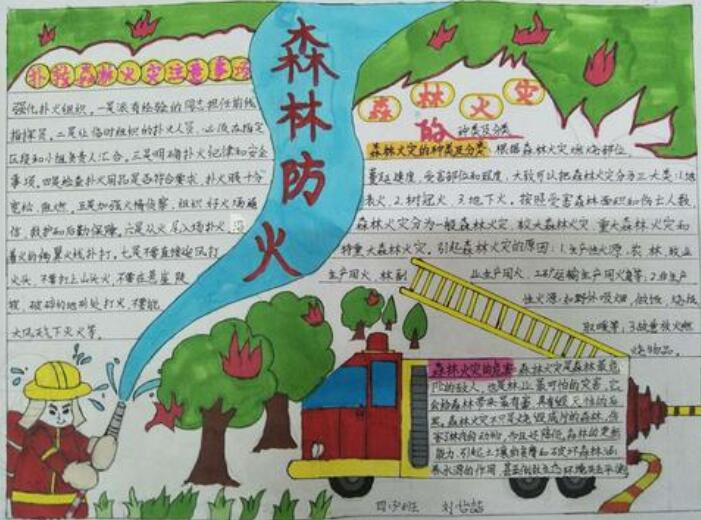 森林防火
扑救森林火灾注意事项
强化扑火组织，一是派有经验的同志担任前线
指挥员，二是让临时组织的扑火人员，必须在指定
区段和小组负责人汇合，三是明确扑火纪律和安全
事项，四是检查扑火用品是否符合要求，扑火服十分
宽松、阻燃，五是加强火情侦察，组织好火场通
信、救护和后勤保障，六是从火尾入场扑火，沿
着火的两翼火线扑打，七是不要直接迎风打
火头，不要打上山火头，不要在悬崖陡
坡、破碎的地形处打火，不要
大风
下灭火等。
森林火灾
的 种类及分类
森林火灾的种类及分类 根据森林火灾燃烧部位、
蔓延速度、受害部位和程度，大致可以把森林火灾分为三大类：1.地
表火，2.树冠火，3.地下火。按照受害森林面积和伤亡人数，
森林火灾分为一般森林火灾，较大森林火灾，重大森林火灾和
特重大森林火灾。引起森林火灾的原因：1.生产性火源，农、林、牧业
生产用火，林副业生产用火，工矿运输生产用火等；2.非生产
性火源：如野外吸烟，做饭，烧纸，
取暖等；3.故意放火燃
烧物品。
森林火灾的危害 森林火灾是森林最危
险的敌人，也是林业最可怕的灾害，它
会给森林带来最有害，具有毁灭性的后
果。森林火灾不只是烧毁成片的森林，伤
害了林内的动物，而且还降低森林的更新
能力，引起土壤的贫瘠和破坏森林涵
养水源的作用，甚至会导致生态环境失去平衡